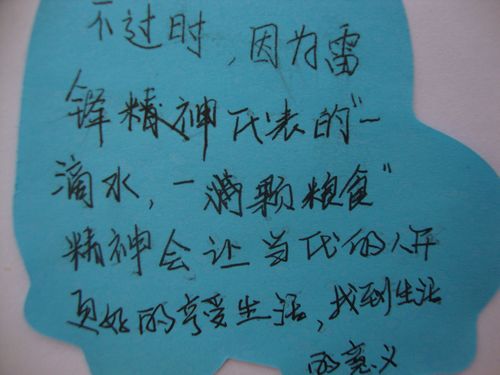 不过时，因为雷
锋精神代表的“一
滴水，一颗粮食”
精神会让当代的人们
更好的享受生活，找到生活
的意义